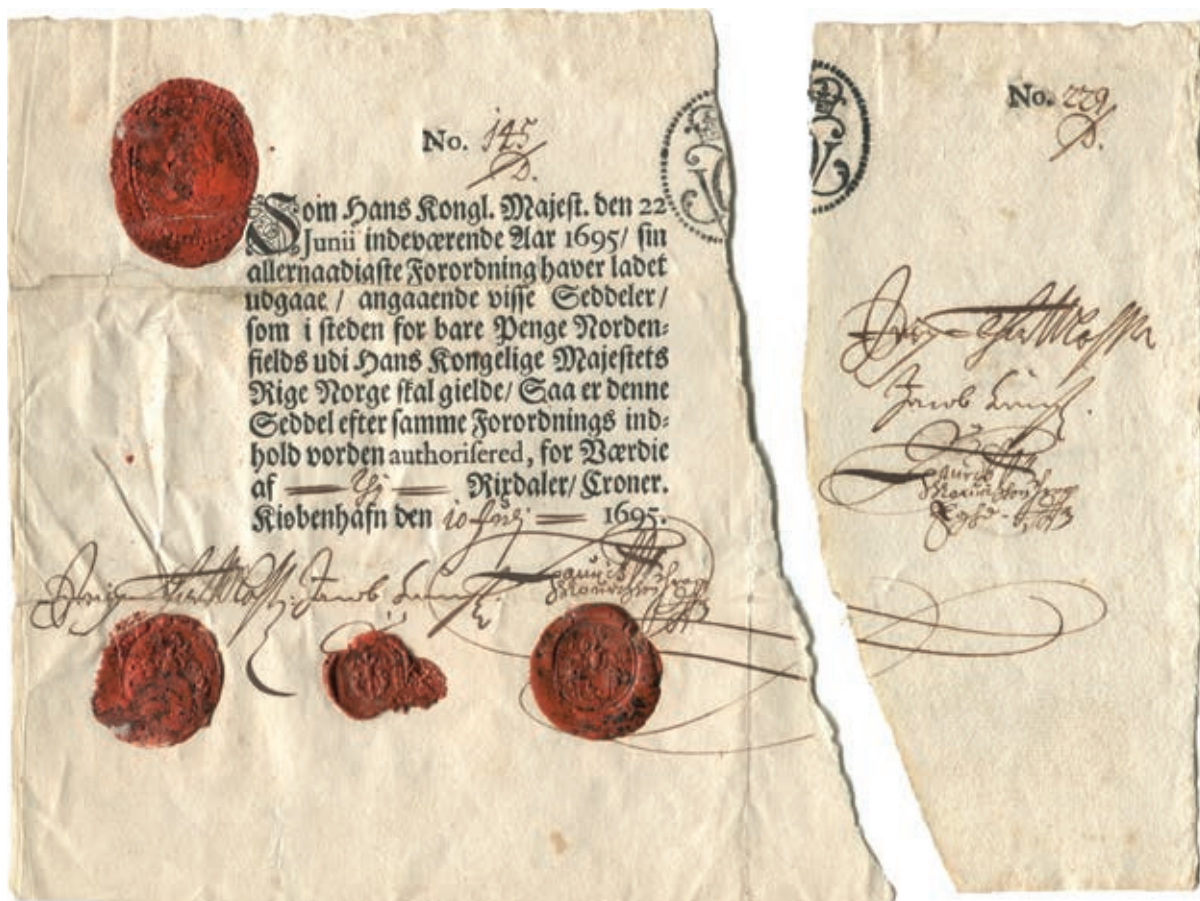 No. 145
D.
Som Hans Kongl. Majest. den 22
Junii indeværende Aar 1695/ sin
allernaadigste Forordning haver ladet
udgaae / angaaende visse Seddeler /
som i steden for bare Penge Norden-
fields udi Hans Kongelige Majestets
Rige Norge skal gielde/ Saa er denne
Seddel efter samme Forordnings ind-
hold vorden authorisered, for Værdie
af Rixdaler/ Croner.
Kiøbenhafn den 10 1695.
Jacob
No. 229
D.
Jacob